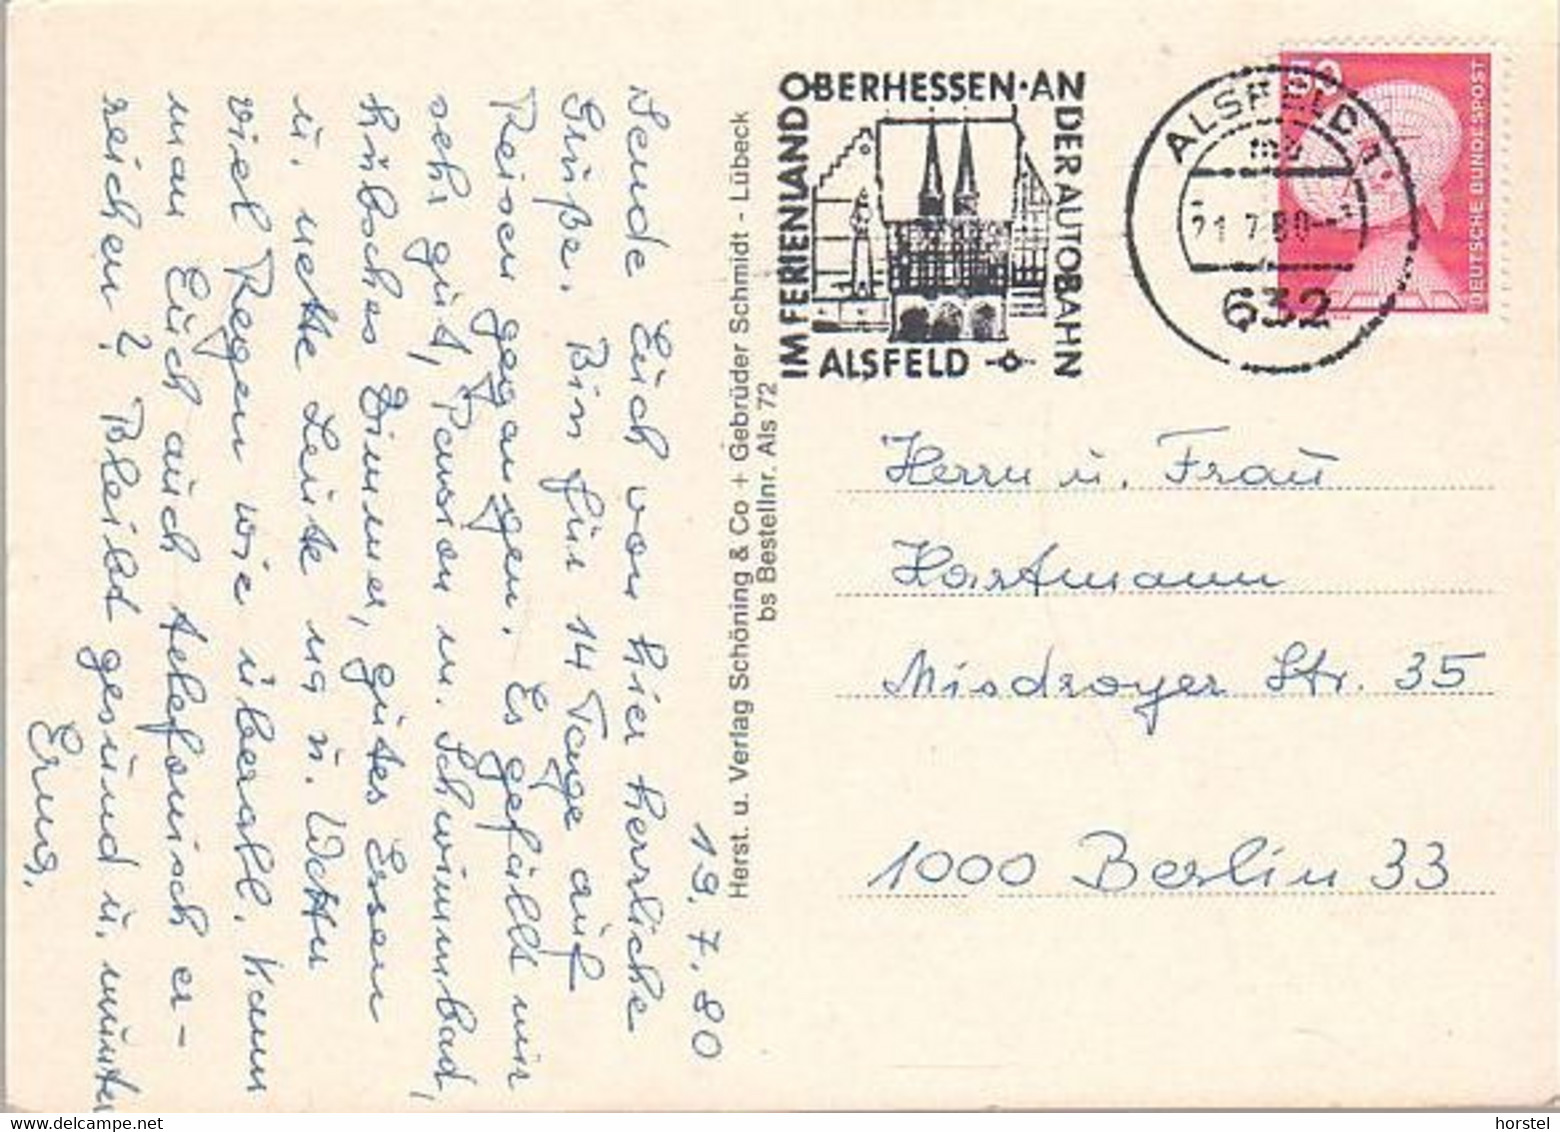 19.7.80
Sende Euch von hier herrliche
Grüße. Bin für 14 Tage auf
Reisen gegangen. Es gefällt mir
sehr gut, Pension m. Schwimmbad,
hübsches Zimmer, gutes Essen
u. nette Leute
viel Regen wie überall. Kann
man Euch auch telefonisch er-
reichen? Bleibt gesund u. munter
Erna.
Herst. u. Verlag Schöning & Co + Gebrüder Schmidt - Lübeck
bs Bestellnr. Als 72
IM FERIENLAND OBERHESSEN · AN DER AUTOBAHN
ALSFELD
ALSFELD 1
mb
21.7.80
632
50
DEUTSCHE BUNDESPOST
Herrn u. Frau
Hartmann
Misdroyer Str. 35
1000 Berlin 33
horstel